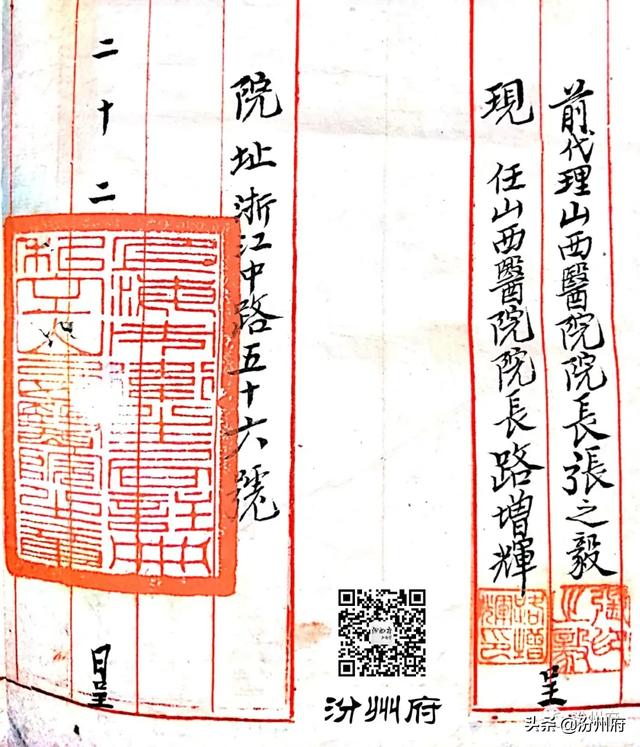 前代理山西醫院院長張之毅
現任山西醫院院長路增輝
呈
張之毅
路增輝印
院址浙江中路五十六號
二十二
日呈
汾州府
头条 @汾州府